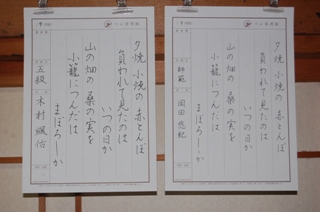 夕焼 小焼の 赤とんぼ
負われて見たのは
いつの日か
山の畑の 桑の実を
小籠につんだは
まぼろしか
師範
岡田
夕焼 小焼の 赤とんぼ
負われて見たのは
いつの日か
山の畑の 桑の実を
小籠につんだは
まぼろしか
五段
木村 颯佑